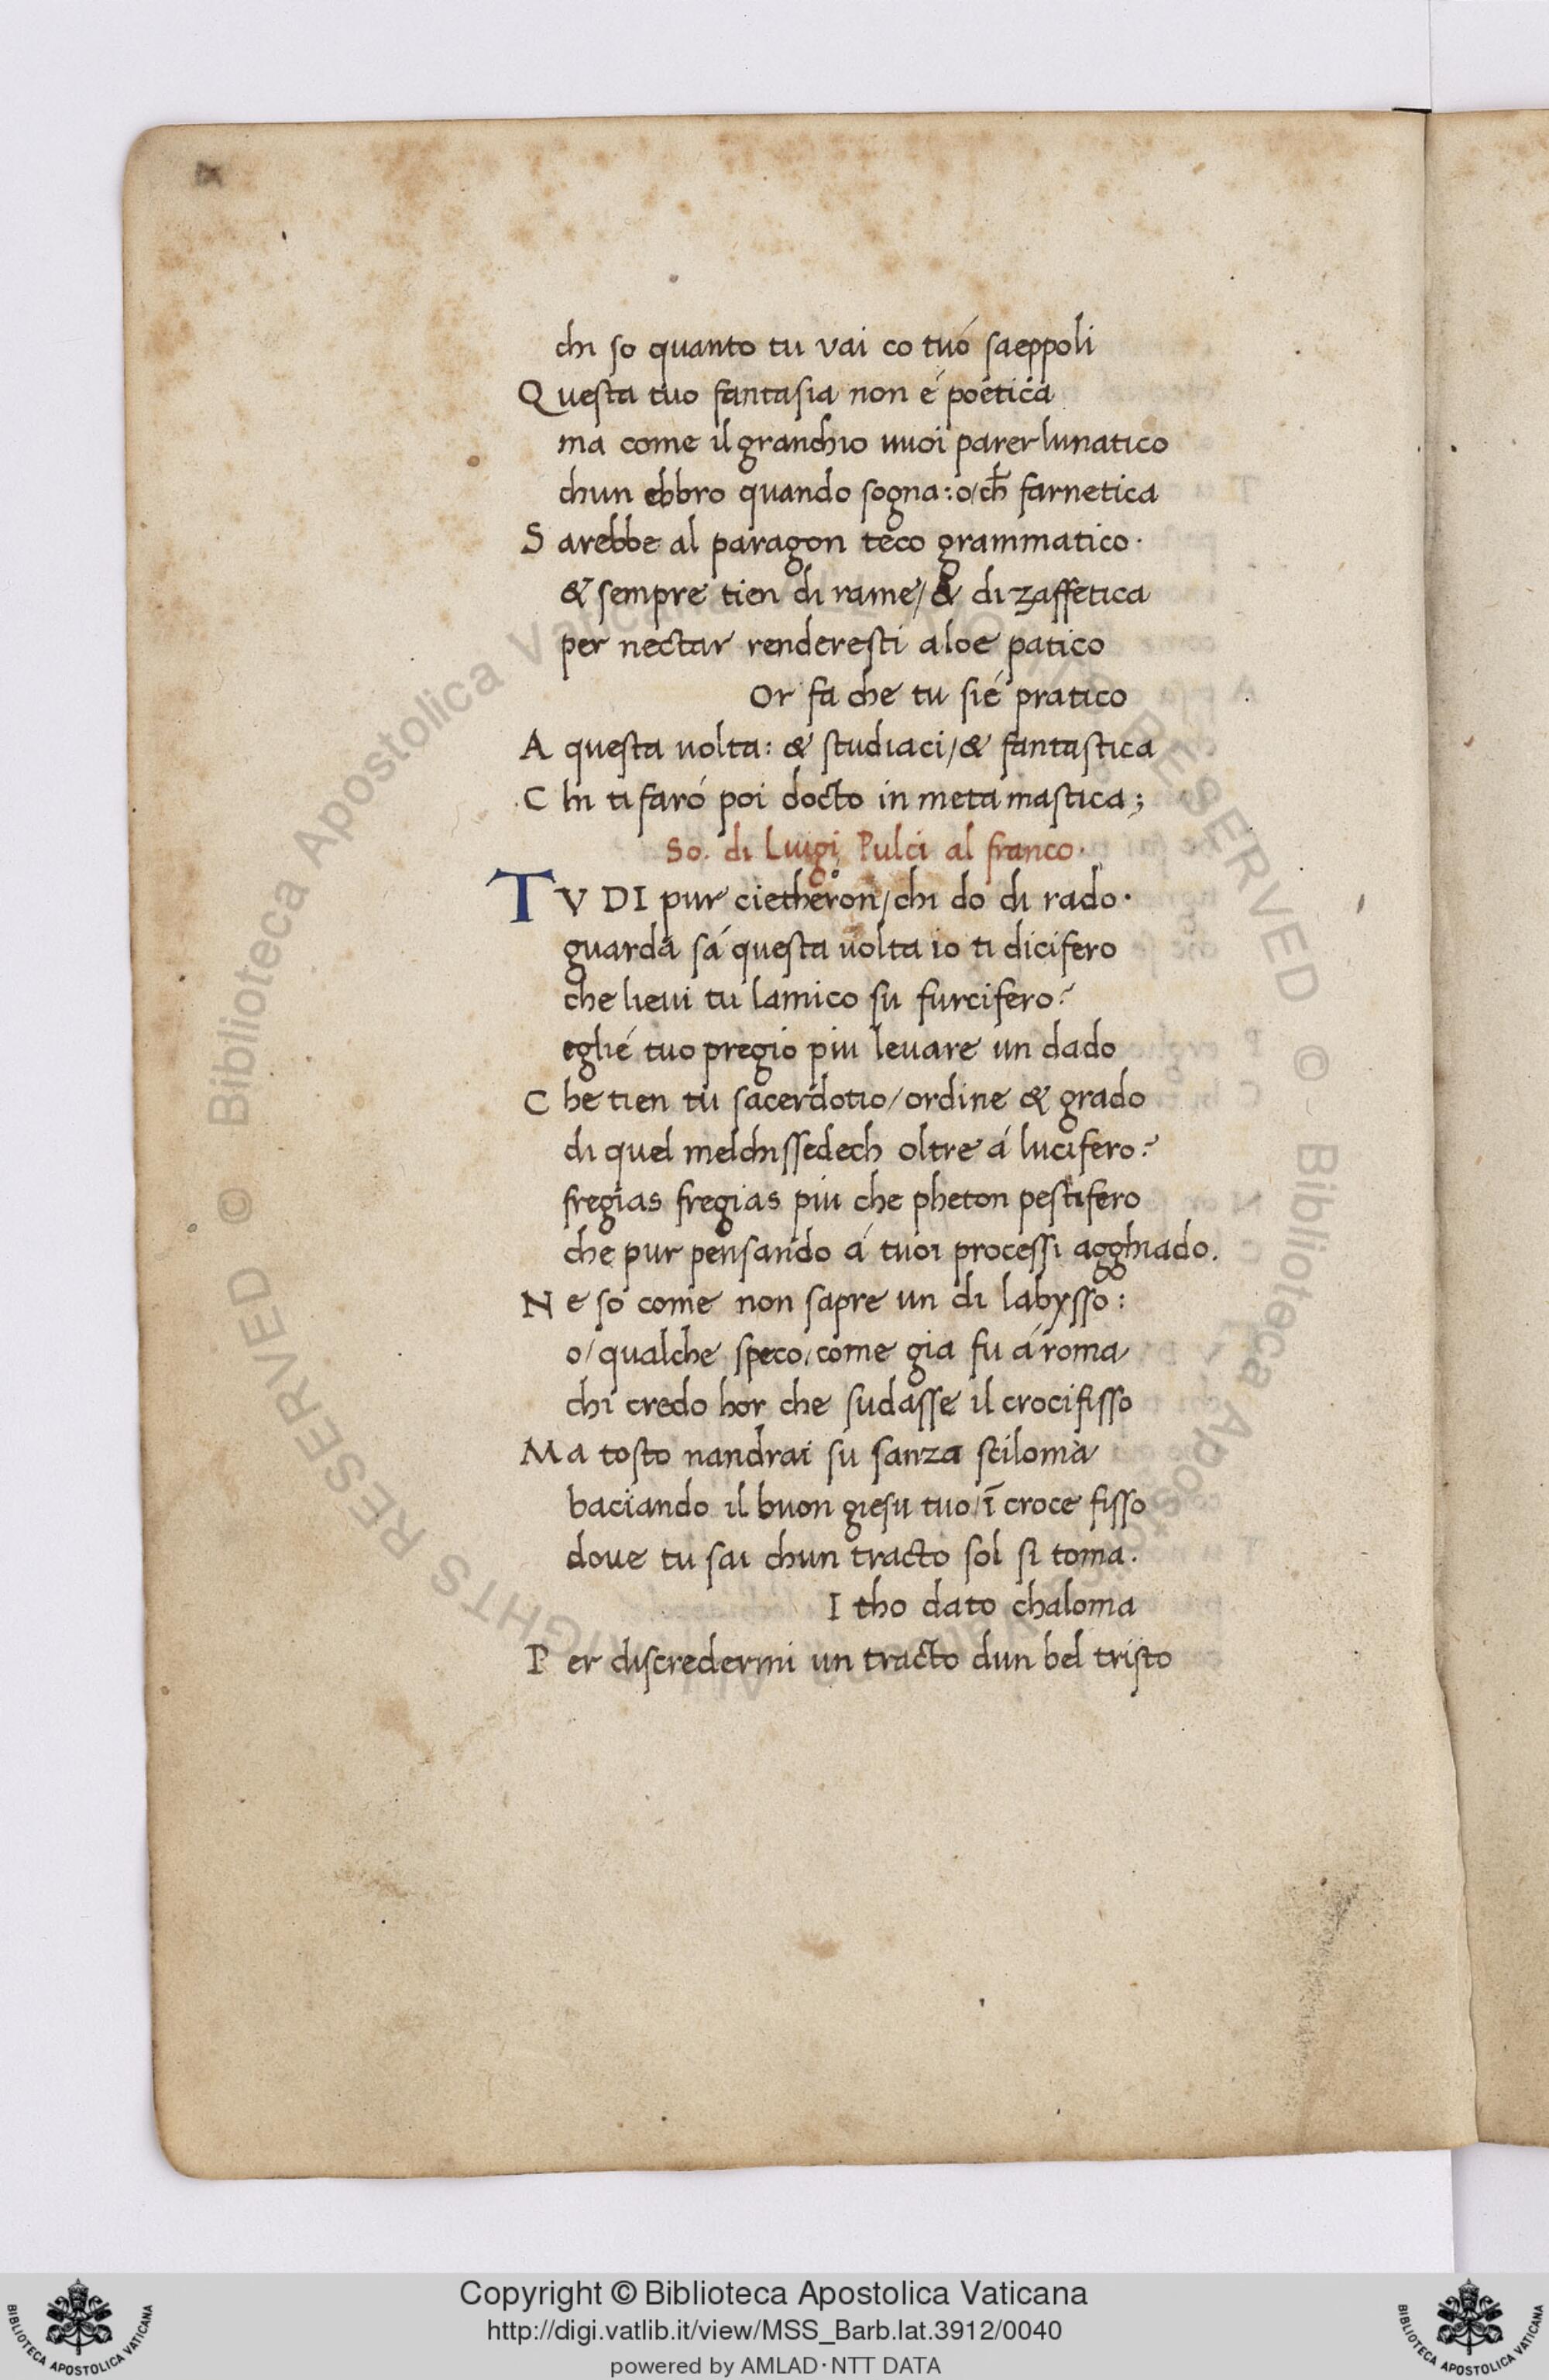 chi so quanto tu vai co tuó saeppoli
Questa tuo fantasia non é poetica
ma come il granchio uuoi parer lunatico
chun ebbro quando sogna: o/ch̄ farnetica
Sarebbe al paragon teco grammatico.
& sempre tien di rame/& di zaffetica
per nectar renderesti aloe patico
Or fa che tu sié pratico
A questa uolta: & studiaci/& fantastica
Chi ti faró poi docto in metamastica;
So. di Luigi Pulci al franco.
TV DI pur cietheron/chi do di rado.
guarda sá questa uolta io ti dicifero
che lieui tu lamico su furcifero?
eglié tuo pregio piu leuare un dado
Che tien tu sacerdotio/ordine & grado
di quel melchissedech oltre á lucifero?
fregias fregias piu che pheton pestifero
che pur pensando á tuoi processi agghiado.
Ne so come non sapre un di labysso:
o/qualche speco/come gia fu á roma
chi credo hor che sudasse il crocifisso
Ma tosto nandrai su sanza sciloma
baciando il buon giesu tuo/ī croce fisso
doue tu sai chun tracto sol si toma.
I tho dato chaloma
Per discredermi un tracto dun bel tristo
© Biblioteca Apostolica Vaticana ALL RIGHTS RESERVED
Copyright © Biblioteca Apostolica Vaticana
http://digi.vatlib.it/view/MSS_Barb.lat.3912/0040
powered by AMLAD·NTT DATA
BIBLIOTECA APOSTOLICA VATICANA
BIBLIOTECA APOSTOLICA VATICANA